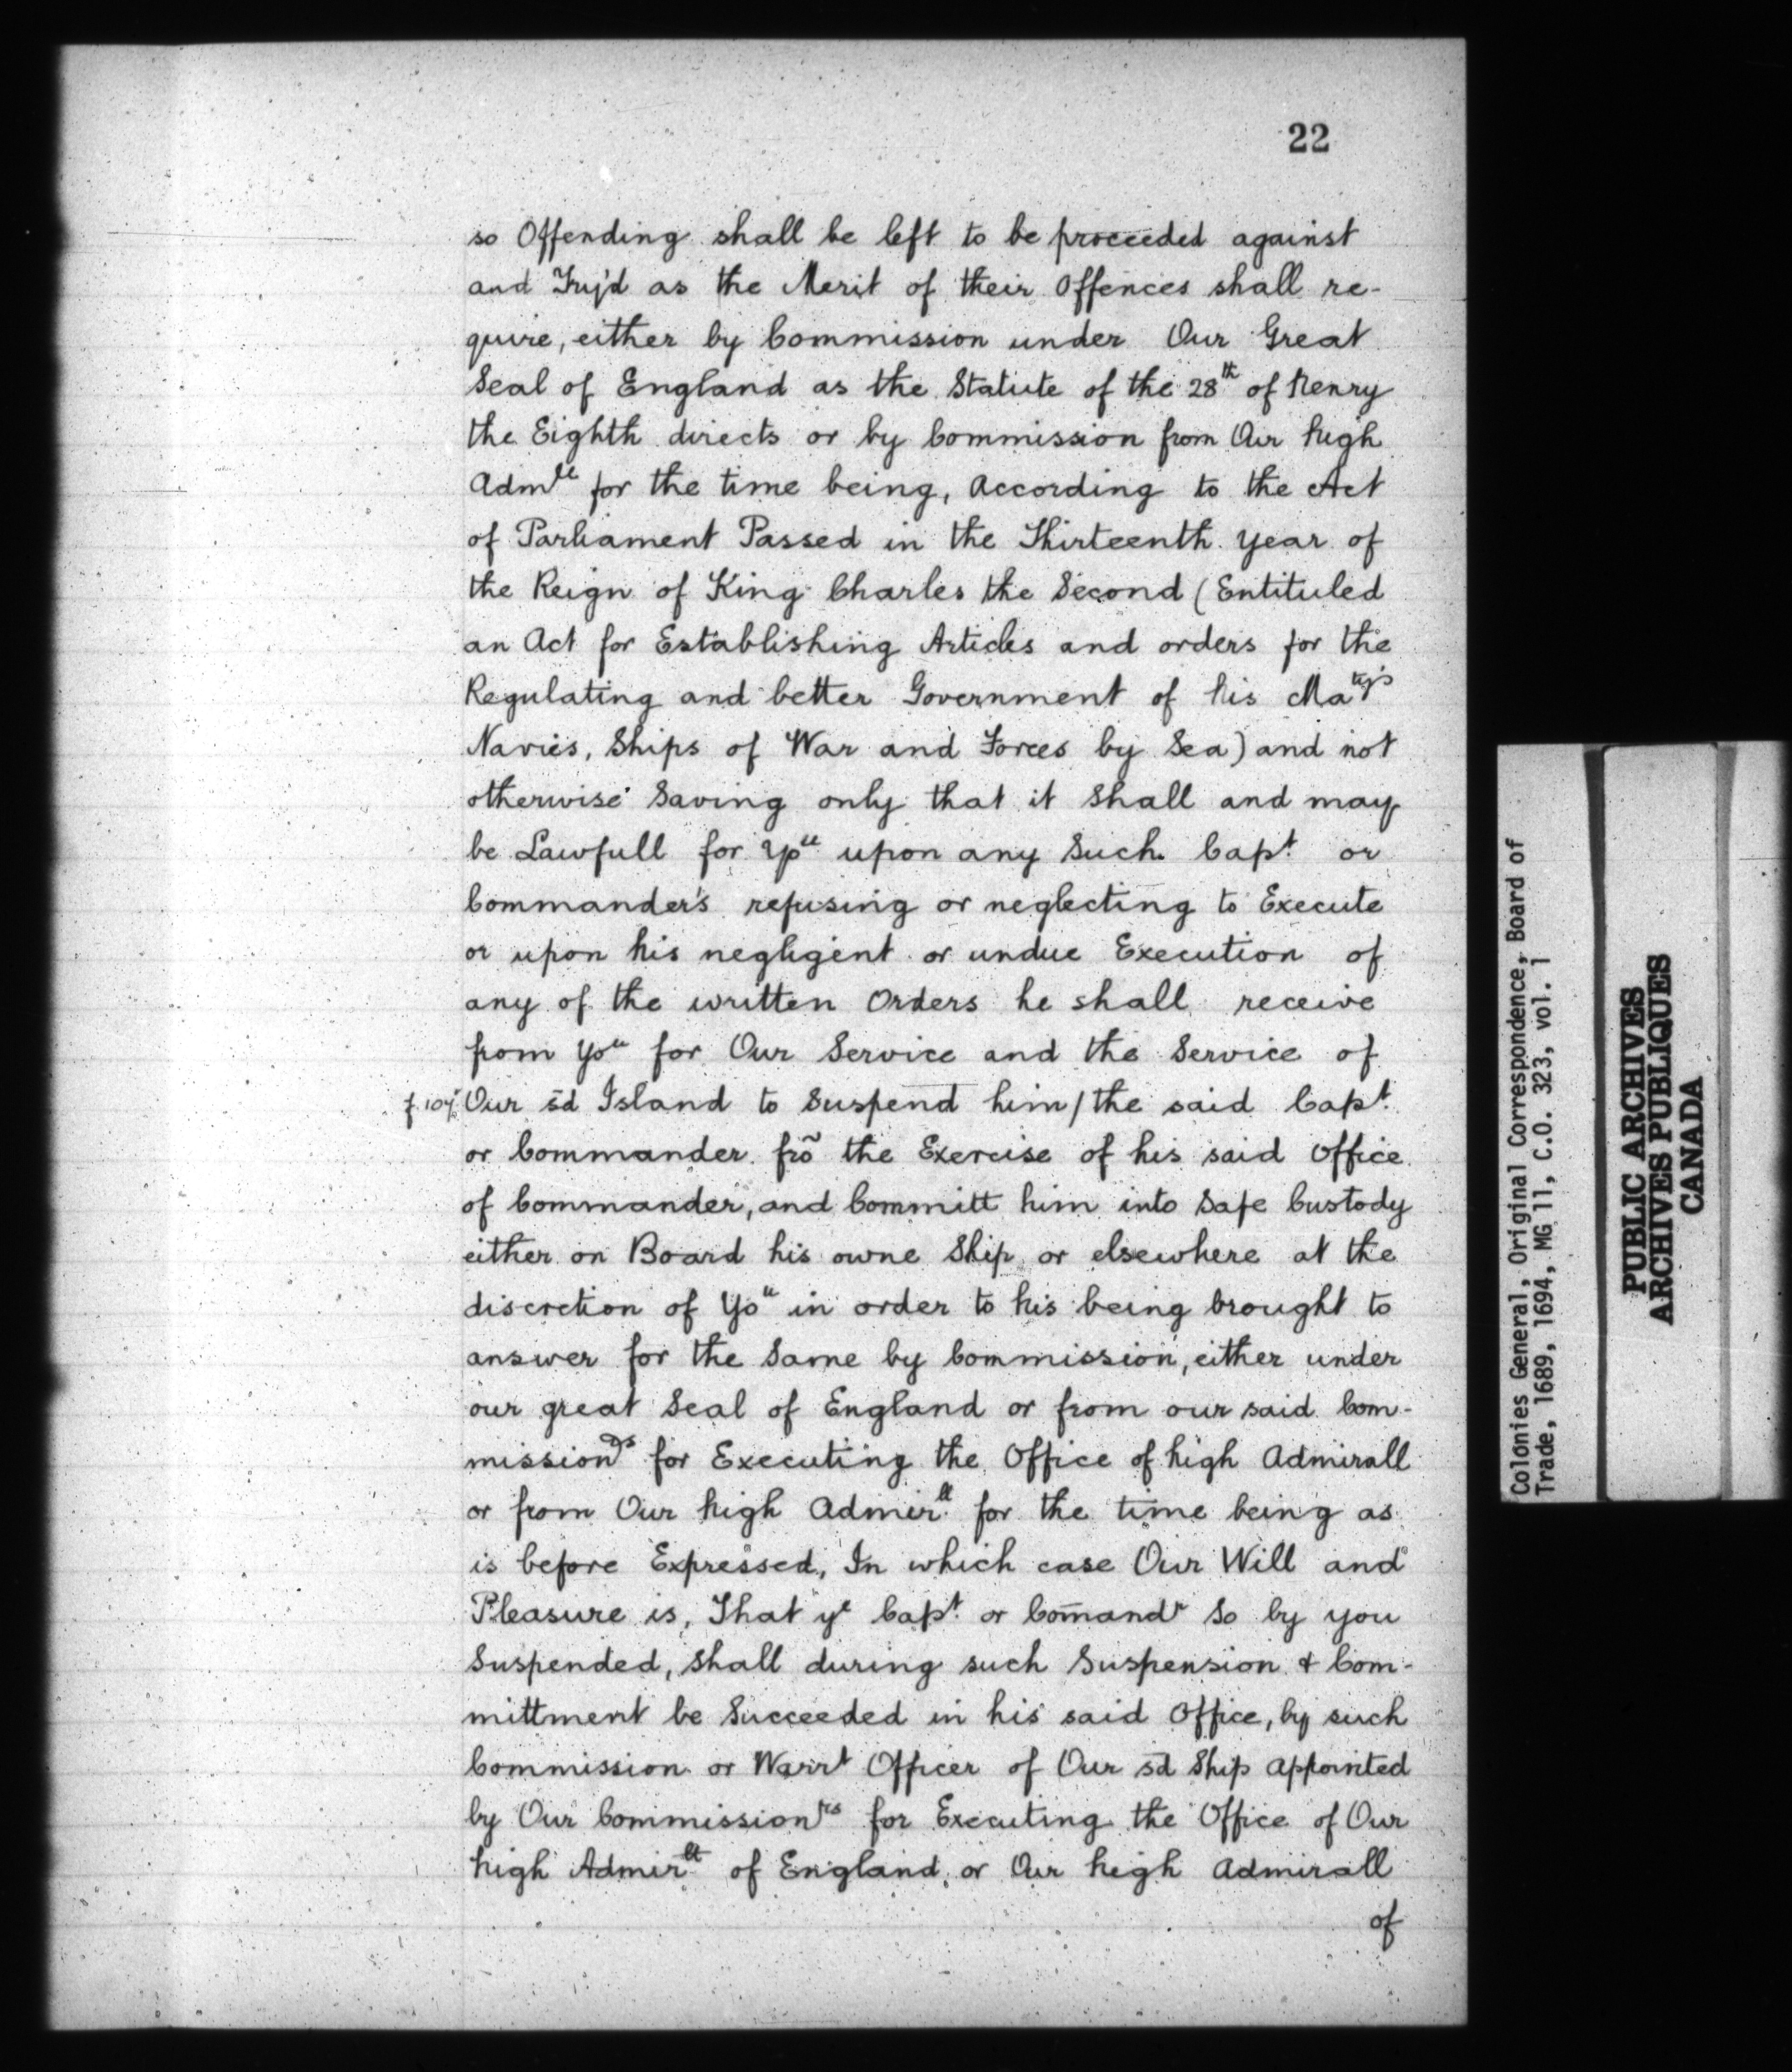 22
so Offending shall be left to be proceeded against
and Try'd as the Merit of their Offences shall re-
quire, either by Commission under Our Great
Seal of England as the Statute of the 28th of Henry
the Eighth directs or by Commission from Our high
Admll for the time being, according to the Act
of Parliament Passed in the Thirteenth year of
the Reign of King Charles the Second (Entituled
an Act for Establishing Articles and orders for the
Regulating and better Government of his Matys
Navies, Ships of War and Forces by Sea) and not
otherwise Saving only that it Shall and may
be Lawfull for You upon any Such Capt. or
Commander's refusing or neglecting to Execute
or upon his negligent or undue Execution of
any of the written Orders he shall receive
from You for Our Service and the Service of
Our sd Island to Suspend him / the said Capt.
or Commander frõ the Exercise of his said Office
of Commander, and Committ him into Safe Custody
either on Board his owne Ship or elsewhere at the
discretion of You in order to his being brought to
answer for the Same by Commission, either under
our great Seal of England or from our said Com-
missionrs for Executing the Office of high Admirall
or from Our high Admirll. for the time being as
is before Expressed, In which case Our Will and
Pleasure is, That ye Capt. or Com̄andr So by you
Suspended, Shall during such Suspension & Com-
mittment be Succeeded in his said Office, by such
Commission or Warrt Officer of Our sd Ship appointed
by Our Commissionrs for Executing the Office of Our
high Admirll of England, or Our high Admirall
of
Colonies General, Original Correspondence, Board of
Trade, 1689, 1694, MG 11, C.O. 323, vol. 1
PUBLIC ARCHIVES
ARCHIVES PUBLIQUES
CANADA